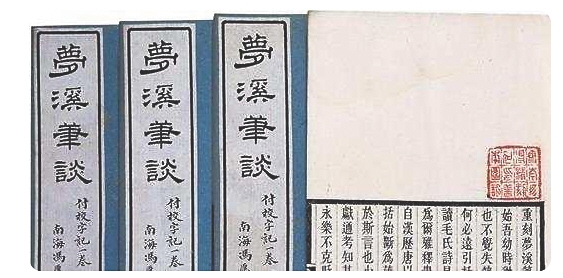 夢溪筆談
付校字記一卷
南海馮
夢溪筆談
付校字記一卷
南海馮
夢溪筆談
付校字記一卷
南海馮
重刻夢溪筆
始吾幼時
也不覺失
何必遠引
讀毛氏詩
爲爾雅釋
自漢歷唐
括始斷爲
於斯言也
獻通考知其
永樂不克